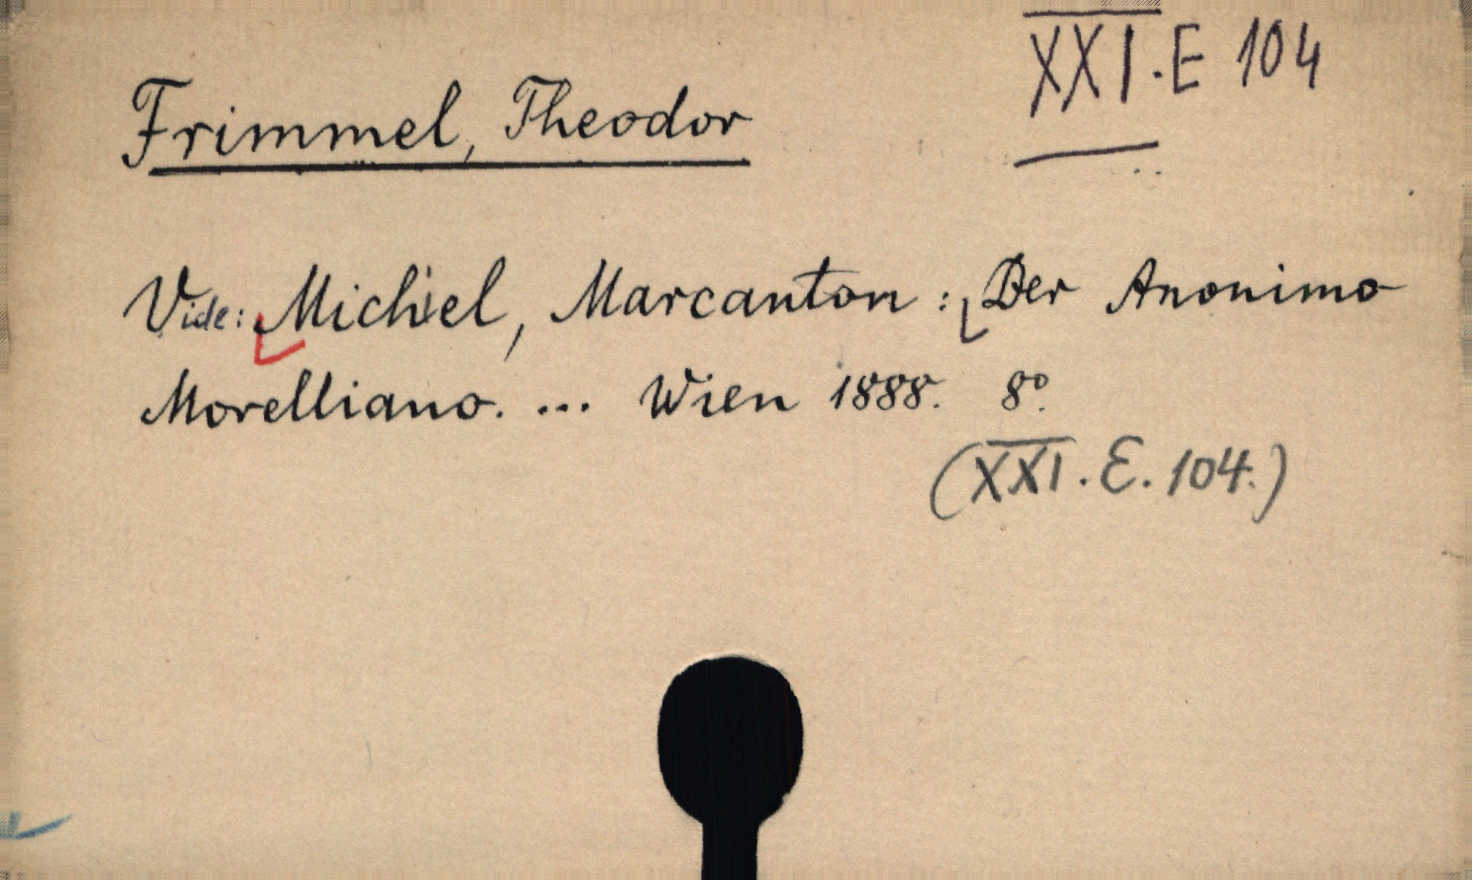 XXI.E 104
Frimmel, Theodor
Vide: Michiel, Marcanton: Der Anonimo
Morelliano. ... Wien 1888. 8°.
(XXI. E. 104.)